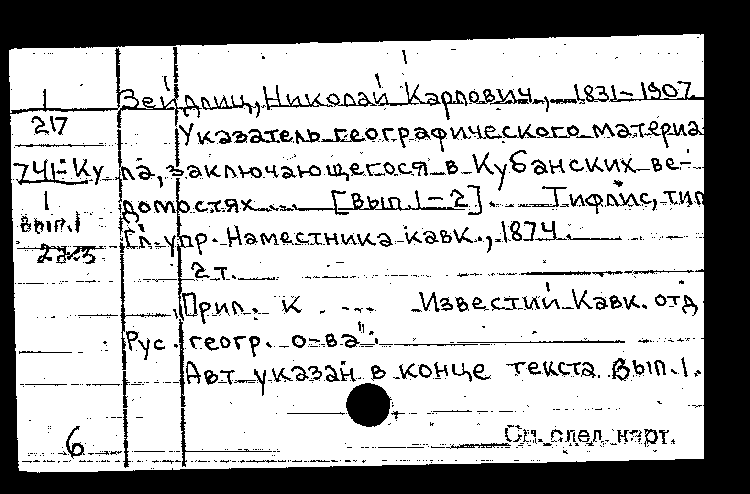 1
217
741-Ку
1
вып.1
2экз
6
Зейдлиц, Николай Карлович, 1831-1907
Указатель географического материа
ла, заключающегося в Кубанских ве-
домостях ... [Вып.1-2]. Тифлис, тип
Гл. упр. Наместника кавк., 1874.
2 т.
Прил. к .... Известий Кавк. отд
Рус. геогр. о-ва".
Авт указан в конце текста вып.1.
См. след. карт.